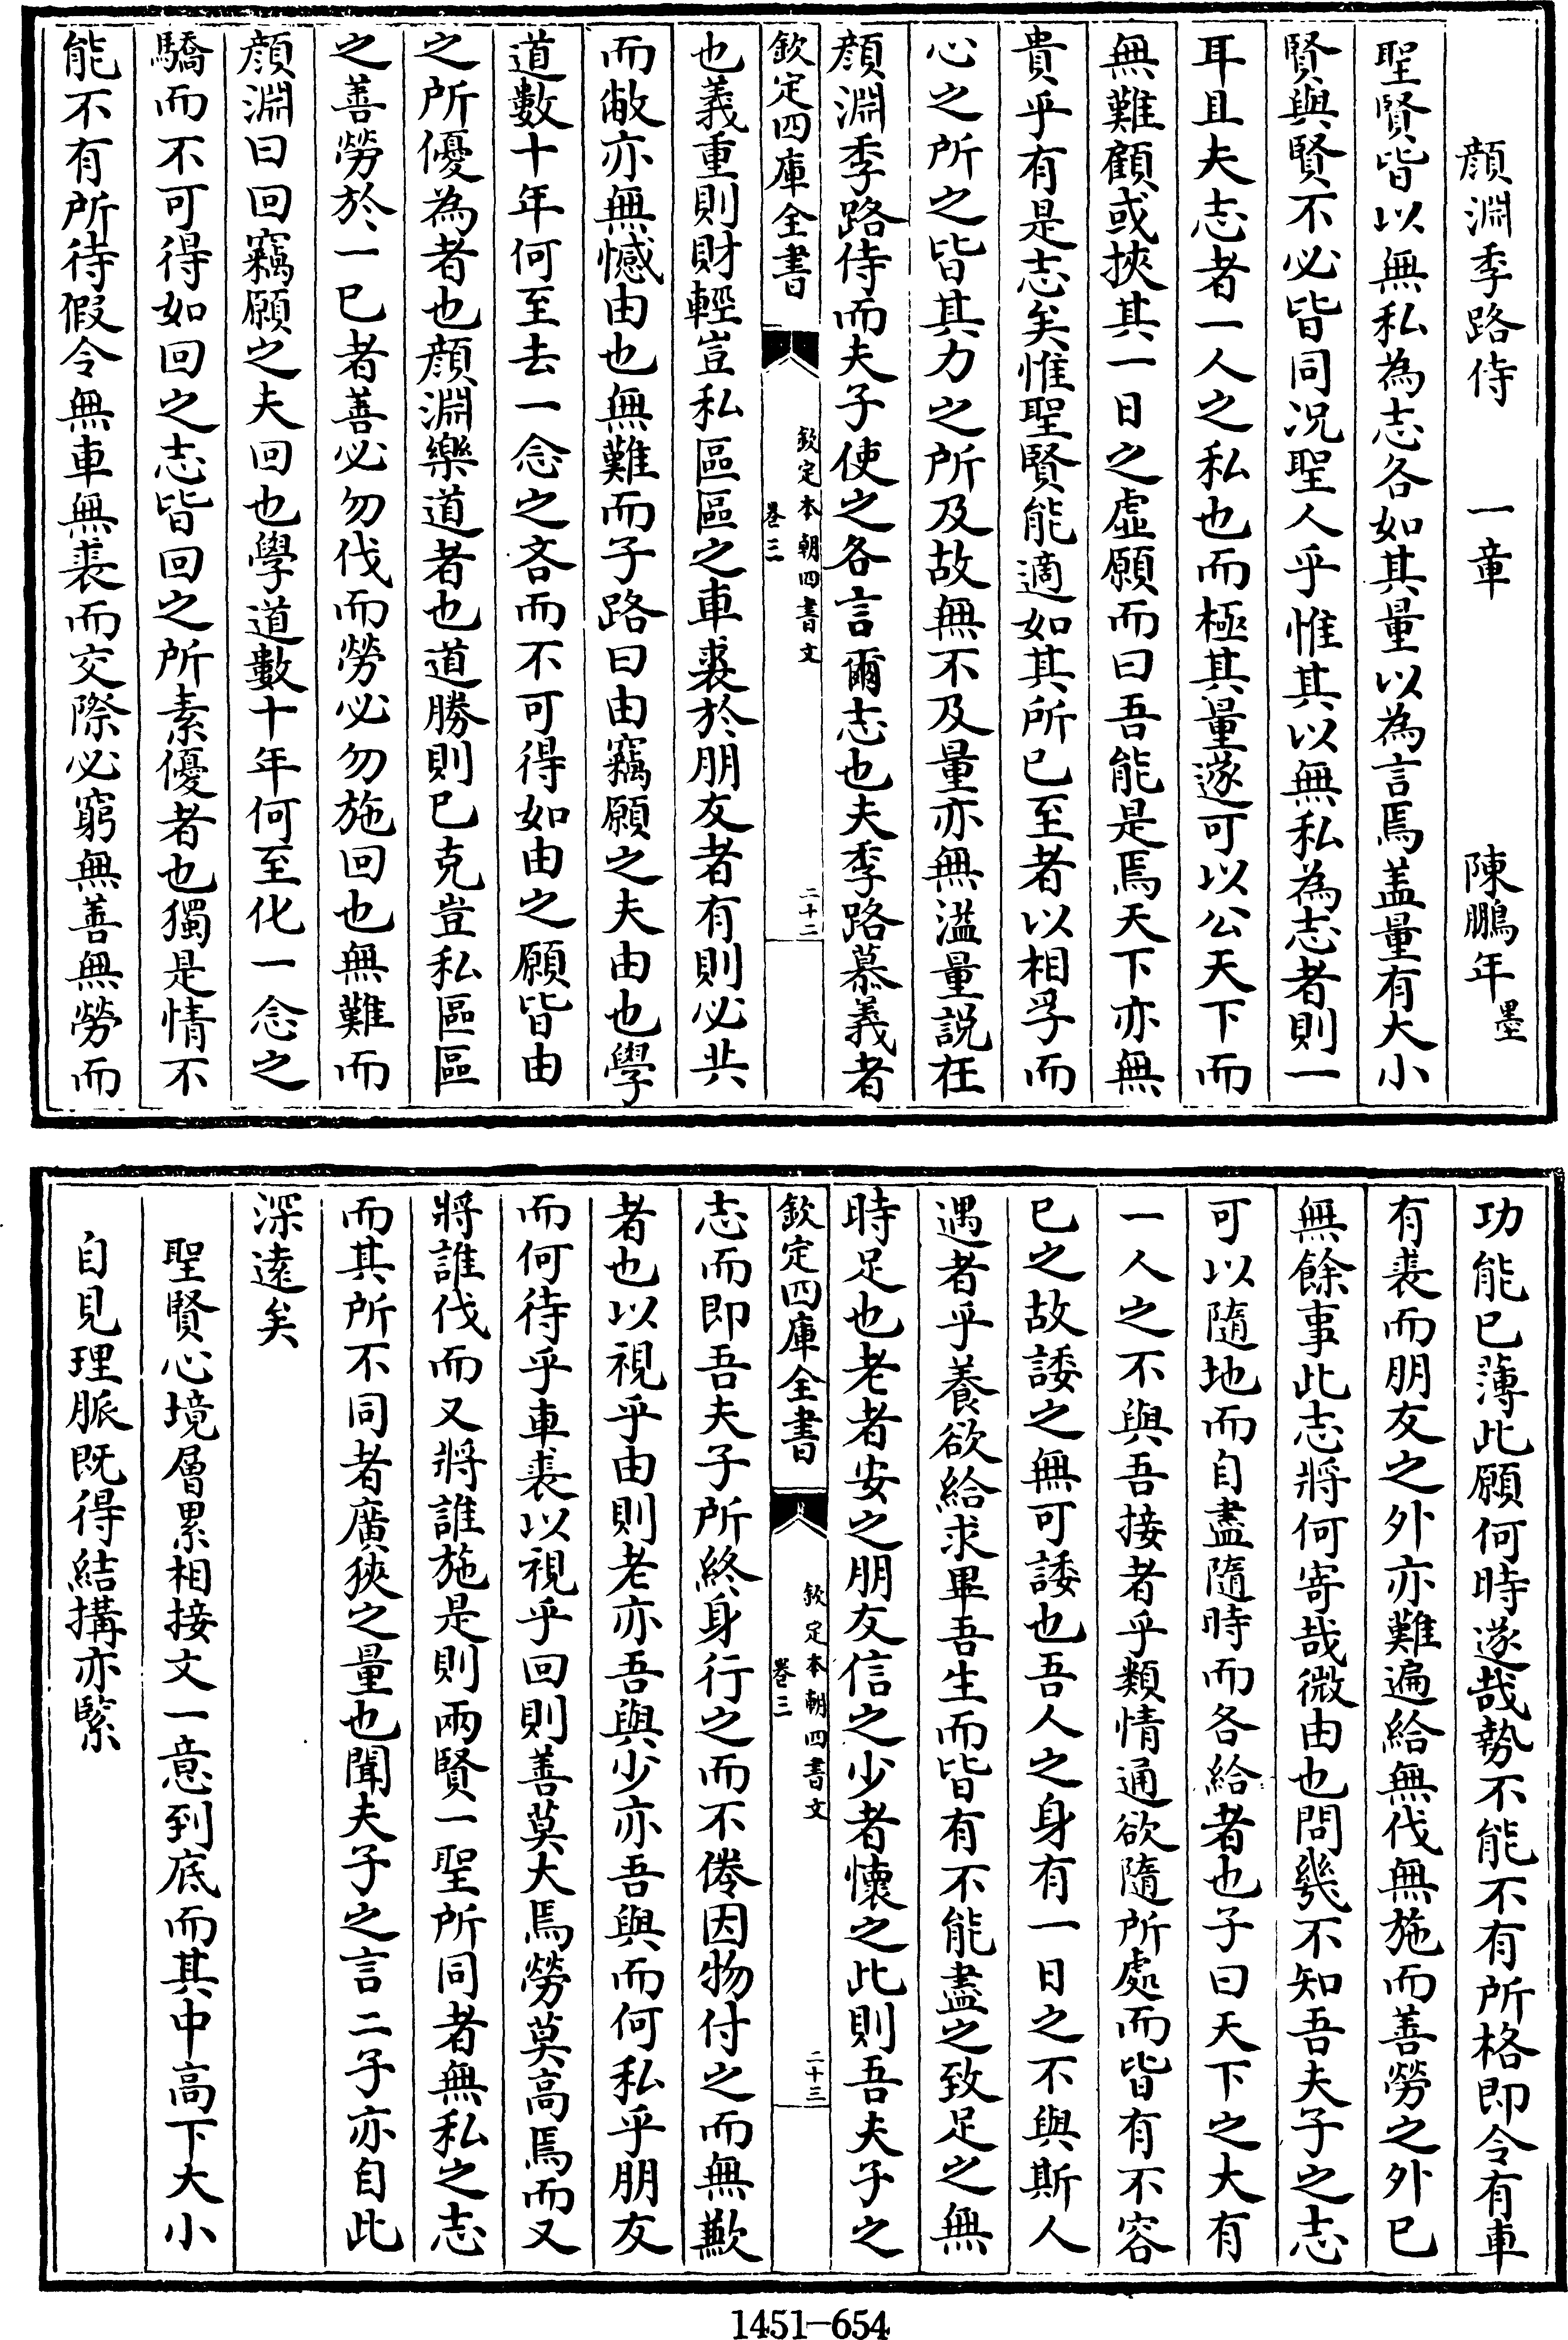 顔淵季路侍　一章　陳鵬年墨
聖賢皆以無私為志各如其量以為言焉盖量有大小
賢與賢不必皆同况聖人乎惟其以無私為志者則一
耳且夫志者一人之私也而極其量遂可以公天下而
無難顧或挾其一日之虛願而曰吾能是焉天下亦無
貴乎有是志矣惟聖賢能適如其所已至者以相孚而
心之所之皆其力之所及故無不及量亦無溢量説在
顔淵季路侍而夫子使之各言爾志也夫季路慕義者
欽定四庫全書
欽定本朝四書文
卷三
二十二
也義重則財輕豈私區區之車裘於朋友者有則必共
而敝亦無憾由也無難而子路曰由竊願之夫由也學
道數十年何至去一念之吝而不可得如由之願皆由
之所優為者也顔淵樂道者也道勝則已克豈私區區
之善勞於一已者善必勿伐而勞必勿施回也無難而
顔淵曰回竊願之夫回也學道數十年何至化一念之
驕而不可得如回之志皆回之所素優者也獨是情不
能不有所待假令無車無裘而交際必窮無善無勞而
功能已薄此願何時遂哉勢不能不有所格即令有車
有裘而朋友之外亦難遍給無伐無施而善勞之外已
無餘事此志將何寄哉微由也問幾不知吾夫子之志
可以隨地而自盡隨時而各給者也子曰天下之大有
一人之不與吾接者乎類情通欲隨所處而皆有不容
已之故諉之無可諉也吾人之身有一日之不與斯人
遇者乎養欲給求畢吾生而皆有不能盡之致足之無
時足也老者安之朋友信之少者懷之此則吾夫子之
欽定四庫全書
欽定本朝四書文
卷三
二十三
志而即吾夫子所終身行之而不倦因物付之而無歉
者也以視乎由則老亦吾與少亦吾與而何私乎朋友
而何待乎車裘以視乎回則善莫大焉勞莫高焉而又
將誰伐而又將誰施是則兩賢一聖所同者無私之志
而其所不同者廣狹之量也聞夫子之言二子亦自此
深遠矣
聖賢心境層累相接文一意到底而其中高下大小
自見理脈既得結搆亦緊
1451-654